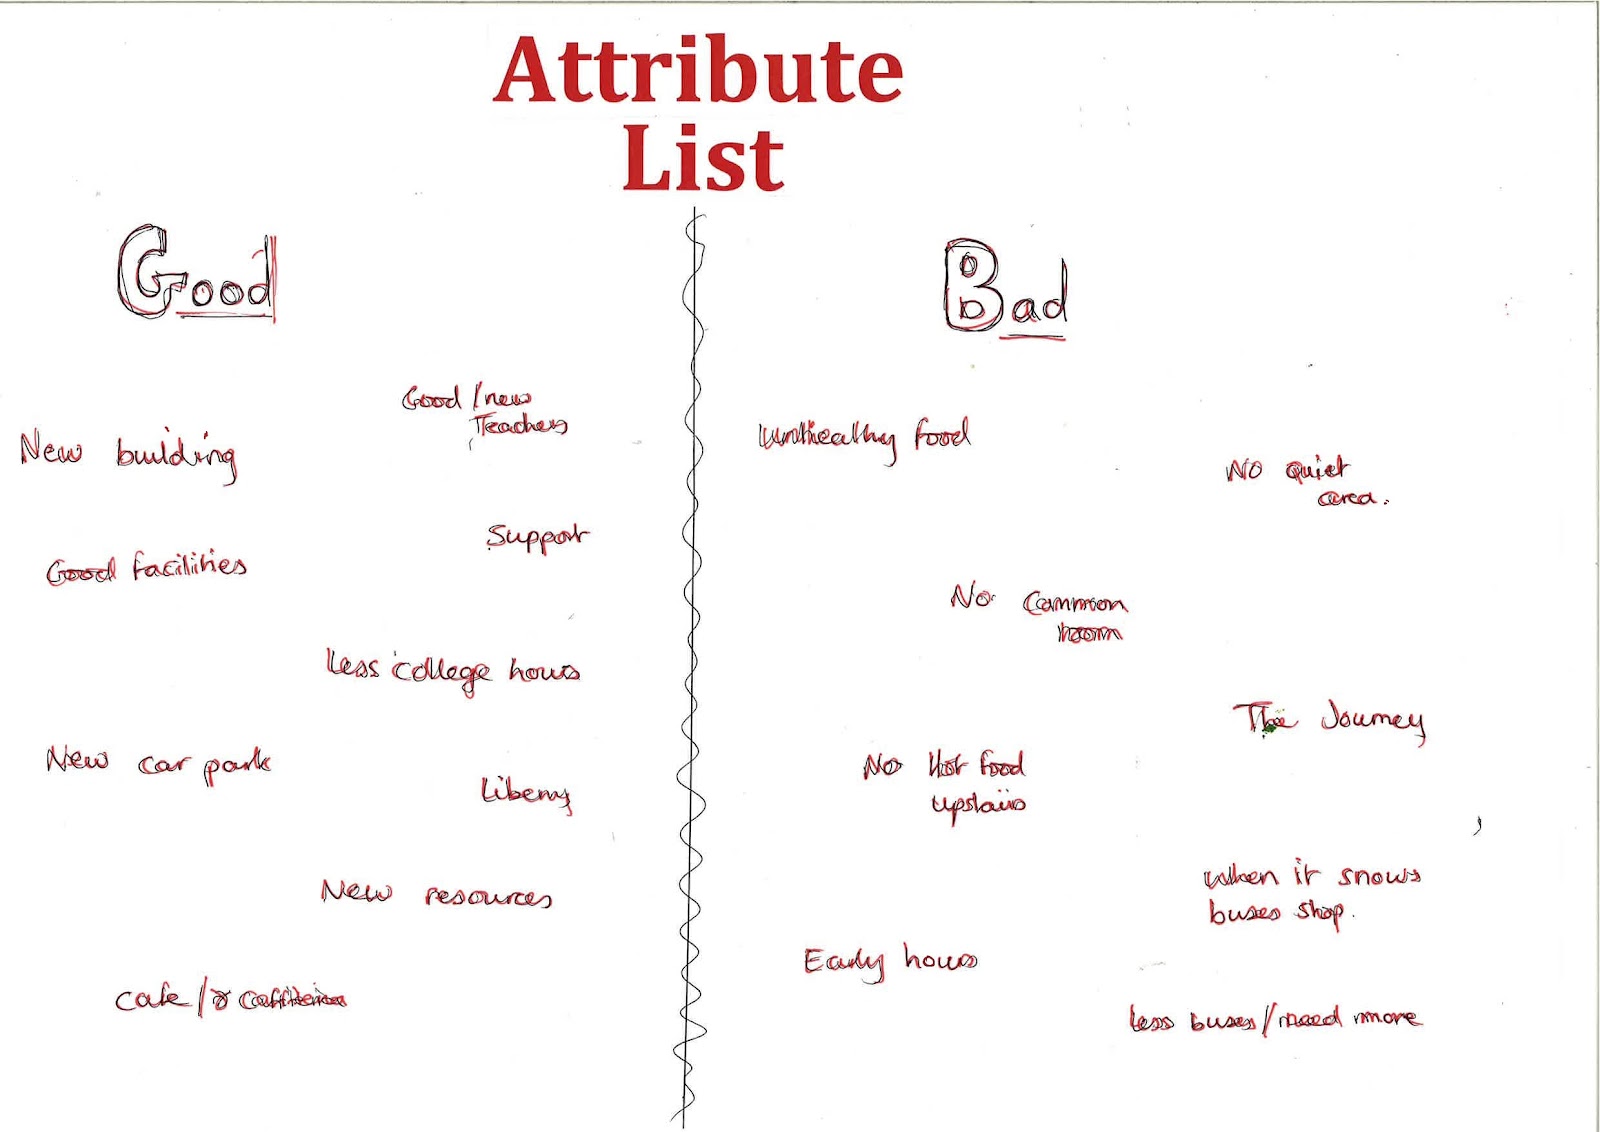 Attribute
List
Good
Good/new
Teachers
New building
Support
Good facilities
Less college hours
New car park
Liberry
New resources
cafe/
Bad
Unhealthy food
No quiet
area.
No common
room
The Journey
No Hot food
upstairs
when it snows
buses stop.
Early hours
less buses/need more